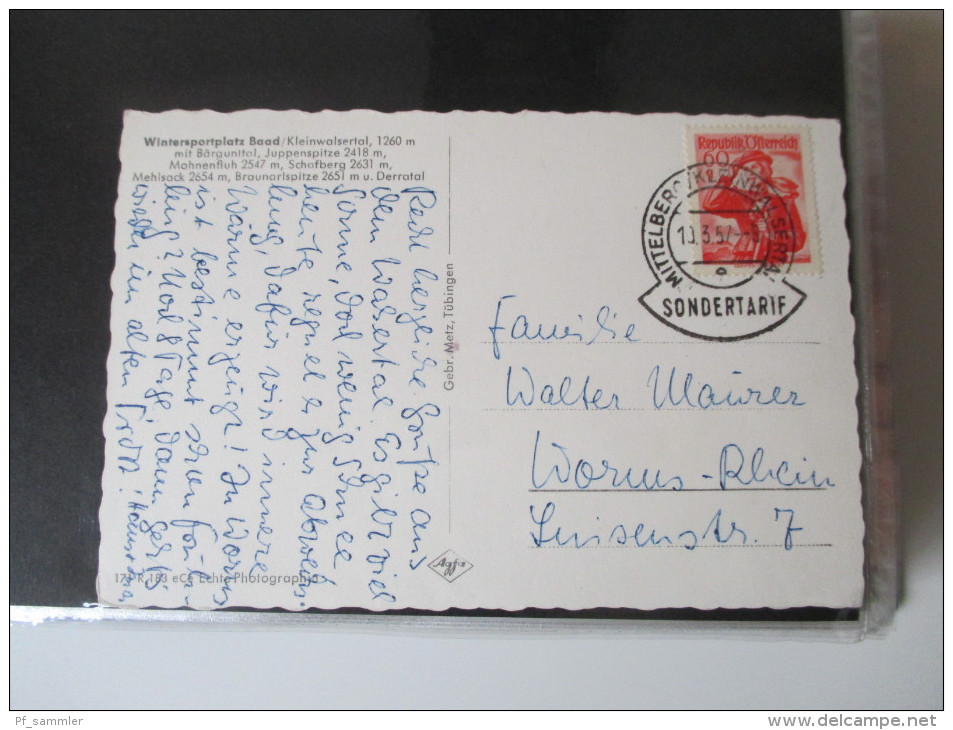 Wintersportplatz Baad/Kleinwalsertal, 1260 m
mit Bärgunttal, Juppenspitze 2418 m,
Mohnenfluh 2547 m, Schafberg 2631 m,
Mehlsack 2654 m, Braunarlspitze 2651 m u. Derratal
Recht herzliche Grüße aus
dem Walsertal. Es gibt viel
Sonne, doch wenig Schnee
heute regnet es zur Abwechs-
lung, dafür wird innere
Wärme erzeugt! In Worms
ist bestimmt schon Früh-
ling? Noch Tage, dann geht's
wieder im alten Trott!
179 R 183 eCs Echte Photographie
Gebr. Metz, Tübingen
Agfa
Republik Österreich
60
MITTELBERG/KLEINWALSERTAL
10.3.57
SONDERTARIF
Familie
Walter Maurer
Worms-Rhein
Luisenstr. 7
Pf_sammler
http://www.delcampe.net